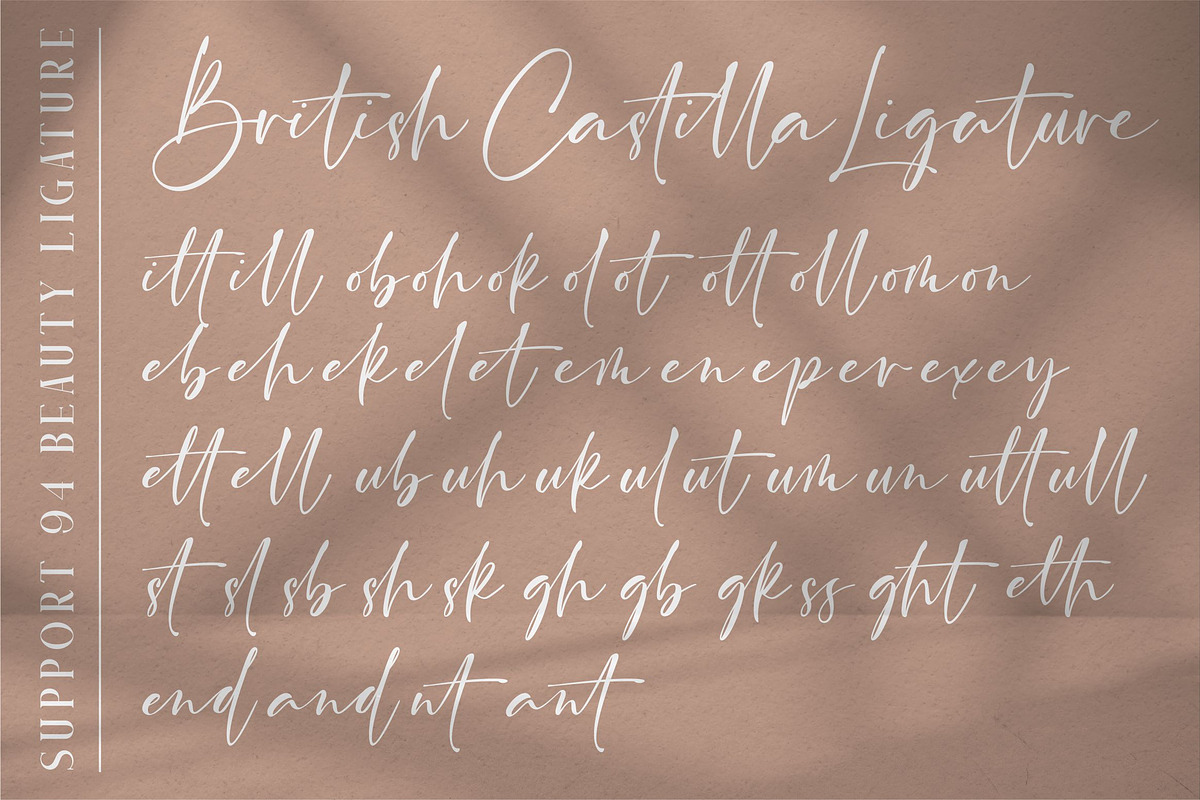 SUPPORT 94 BEAUTY LIGATURE
British Castilla Ligature
itt ill ob oh ok ol ot ott oll om on
eb eh ek el et em en ep er ex ey
ett ell ub uh uk ul ut um un utt ull
st sl sb sh sk gh gb gk ss ght eth
end and nt ant